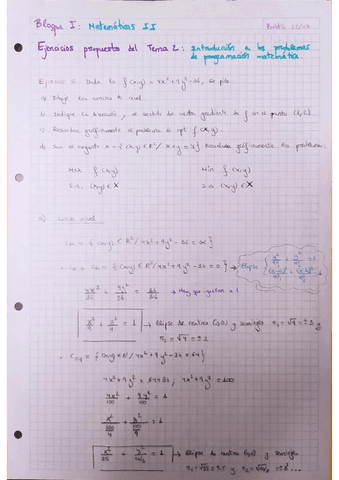 Bloque I: Matemáticas II
Ejercicios propuestos del Tema 2: Introducción a los problemas
de programación matemática.
Ejercicio 5. Dada la f(x,y) = 4x²+9y²-36, se pide
a) Dibuje las curvas de nivel.
b) Indique la dirección y el sentido del vector gradiente de f en el punto (1,2).
c) Resuelva gráficamente el problema de opt f(x,y).
d) Sea el conjunto X = {(x,y)∈R² / x+y=1} Resuelva gráficamente los problemas:
Max f(x,y) Min f(x,y)
s.a. (x,y)∈X s.a. (x,y)∈X
a) Curvas nivel
= {(x,y)∈R²/4x²+9y²-36=α}
= {(x,y)∈R²/4x²+9y²-36=0} → Elipse
4x²/36 + 9y²/36 = 36/36 → Hay que igualar a 1
x²/9 + y²/4 = 1 → Elipse de centro (0,0) y semiejes r₁=√9=±3 y
r₂=√4=±2
C₆₄ = {(x,y)∈R²/4x²+9y²-36=64}
4x²+9y²=64+36; 4x²+9y²=100
4x²/100 + 9y²/100 = 1
x²/100/4 + y²/100/9 = 1
x²/25 + y²/100/9 = 1 → Elipse de centro (0,0) y semiejes
r₁=√25=±5 y